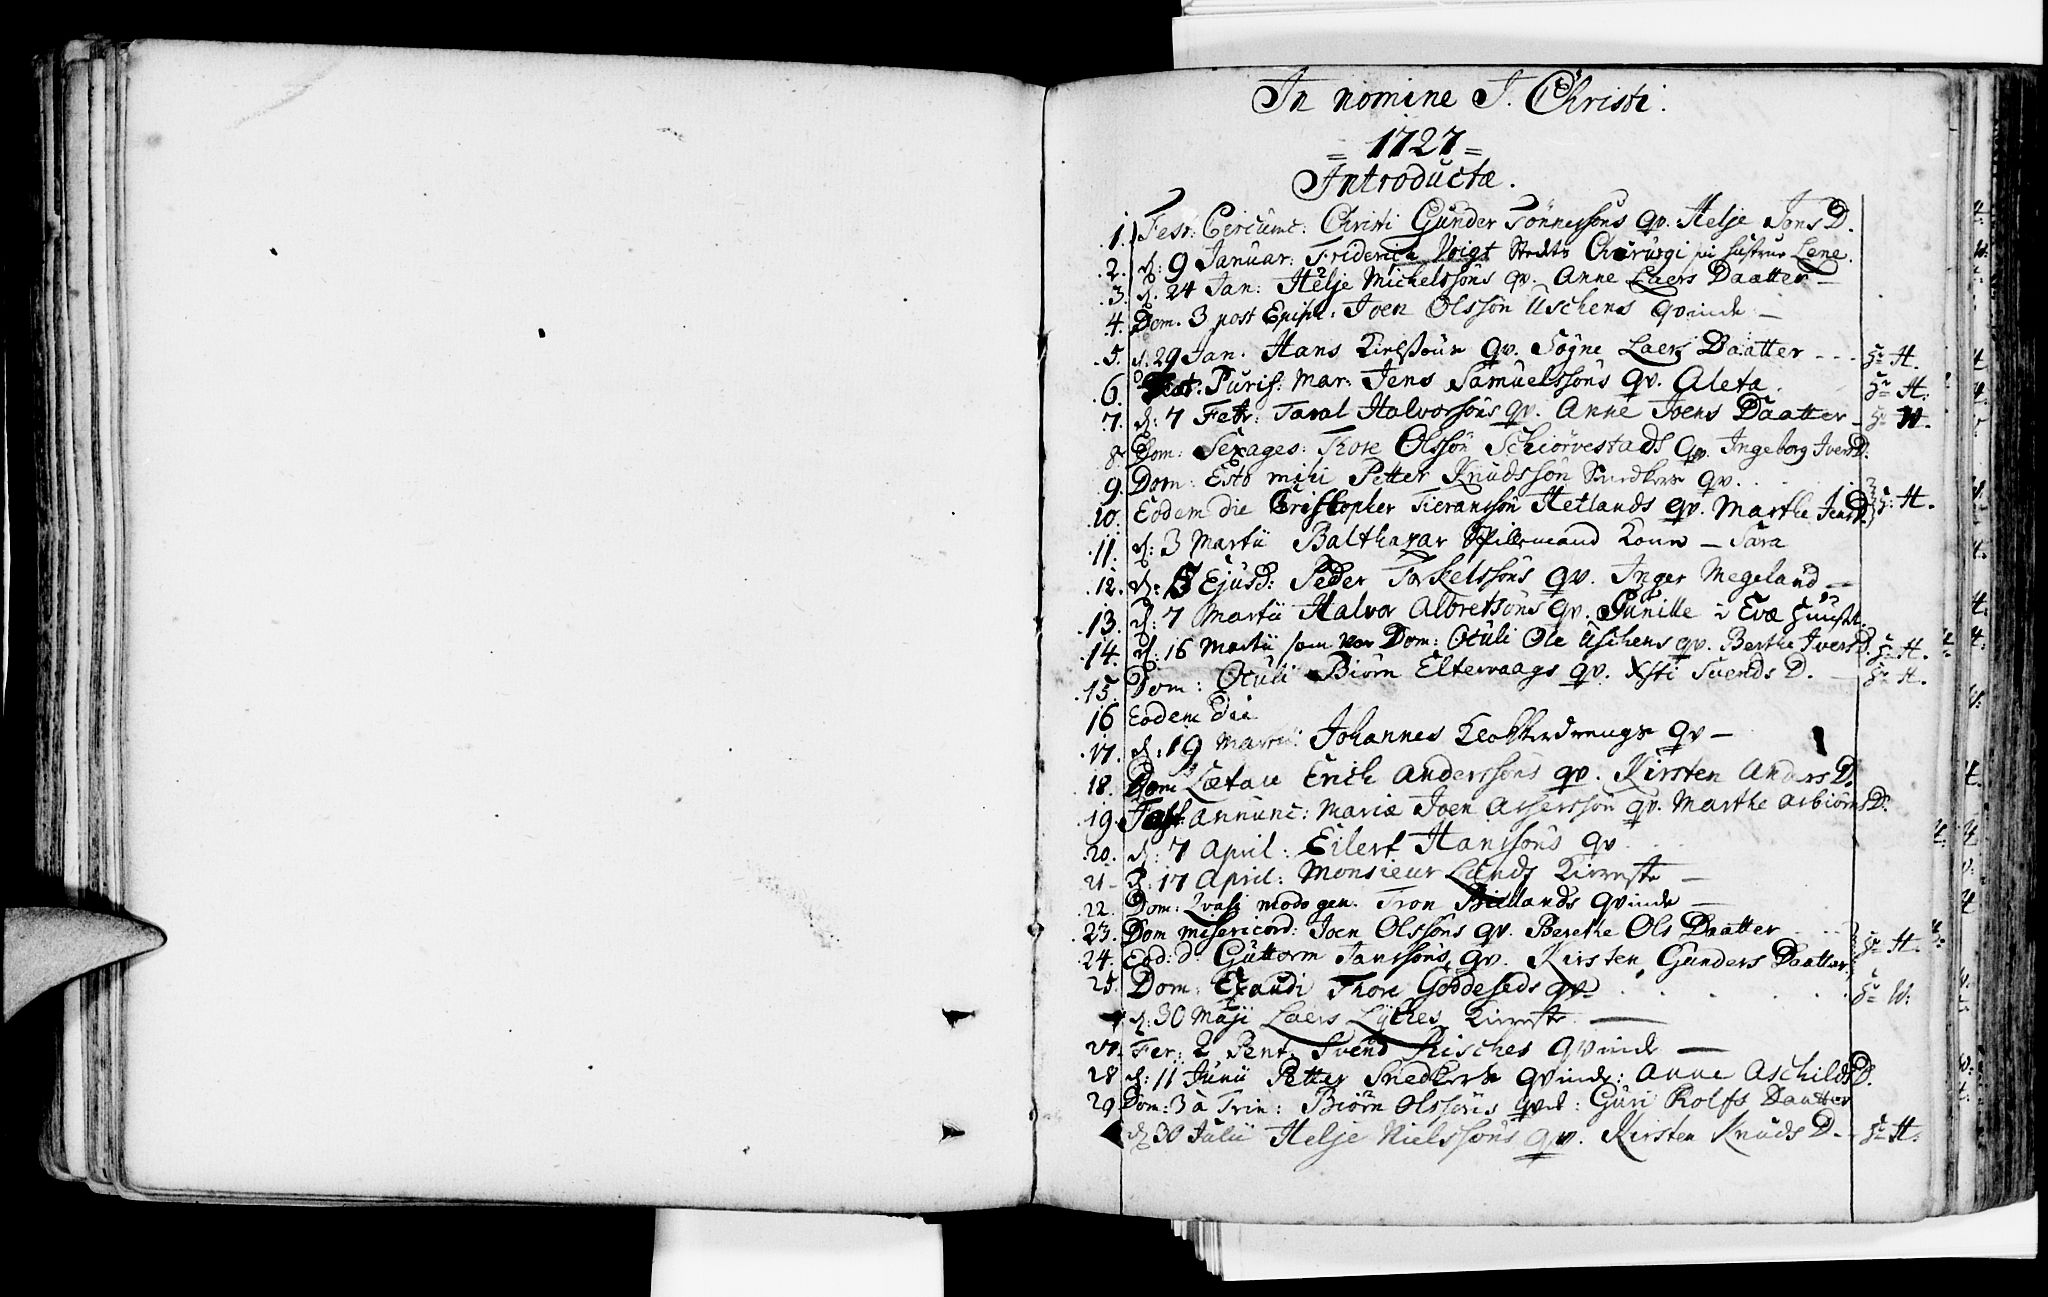 In nomine J. Christi.
= 1727 =
Introductæ.
1. Fest: Circumc: Christi Gunder Tönnessöns qv. Helje Jons D.
2. d: 9 Januar: Friderich Voigt Stedts Chirurgi hustrue Lene.
3. d. 24 Jan: Helje Michelssöns qv. Anne Laers Daatter —
4. Dom. 3 post Epiph: Joen Olssön Uschens qvinde —
5. d. 29 Jan. Hans qv. Sögne Laers Daatter - - - Hr H.
6. Fest: Purif: Mar: Jens Samuelssöns qv. Aleta. Hr H:
7. d: 7 Febr: Taral Halvorssöns qv. Anne Joens Daatter - Hr H.
8. Dom: Sexages: Thore Olssön Schiörvestads qv. Ingeborg Ivers D.
9. Dom: Esto mihi Petter Knudssön Snedkers qv.
10. Eodem die Cristopher Hetlands qv. Marthe Jens D. Hr: H.
11. d: 3 Martii Balthazar Spillemand Kone — Sara
12. d: 5 Ejusd: Peder Torkelssöns qv. Inger Megeland —
13. d: 7 Martii Halvor Albretsöns qv. Pernille i Evæ
14. d: 16 Martii som var Dom: Oculi Ole Uschens qv. Berthe Ivers D. Hr H.
15. Dom: Oculi Biörn Eltervaags qv. Xsti Svends D. — Hr H.
16 Eodem die
17. d: 19 Martii: Johannes Klokkerdrengs qv —
18. Dom Lætare Erich Anderssöns qv. Kirsten Anders D.
19. Fest: Annunc: Mariæ Joen Assersson qv. Marthe Asbiörns D.
20. d: 7 April: Eilert Hanssöns qv
21 - d: 17 April: Monsieur Lunds Kierreste —
22. Dom: Qvasi modo gen. Tron Bietlands qvinde —
23. Dom Misericord: Joen Olssöns qv. Berethe Ols Daatter
24. Eod: d: Guttorm Janssöns qv. Kirsten Gunders Daatter. Hr H.
25. Dom: Exaudi Thore Goddeseds qv Hr W:
d: 30 Maji Laers Lyches Kierreste —
27. Fer: 2 Pent. Svend Risches qvinde —
28 d: 11 Junii Petter Snedkers qvinde: Anne Aschilds D.
29 Dom: 3 à Trin: Biörn Olssöns qvd: Guri Rolfs Daatter
d 30 Julii Helje Nielssöns qv. Kirsten Knuds D. - Hr H.